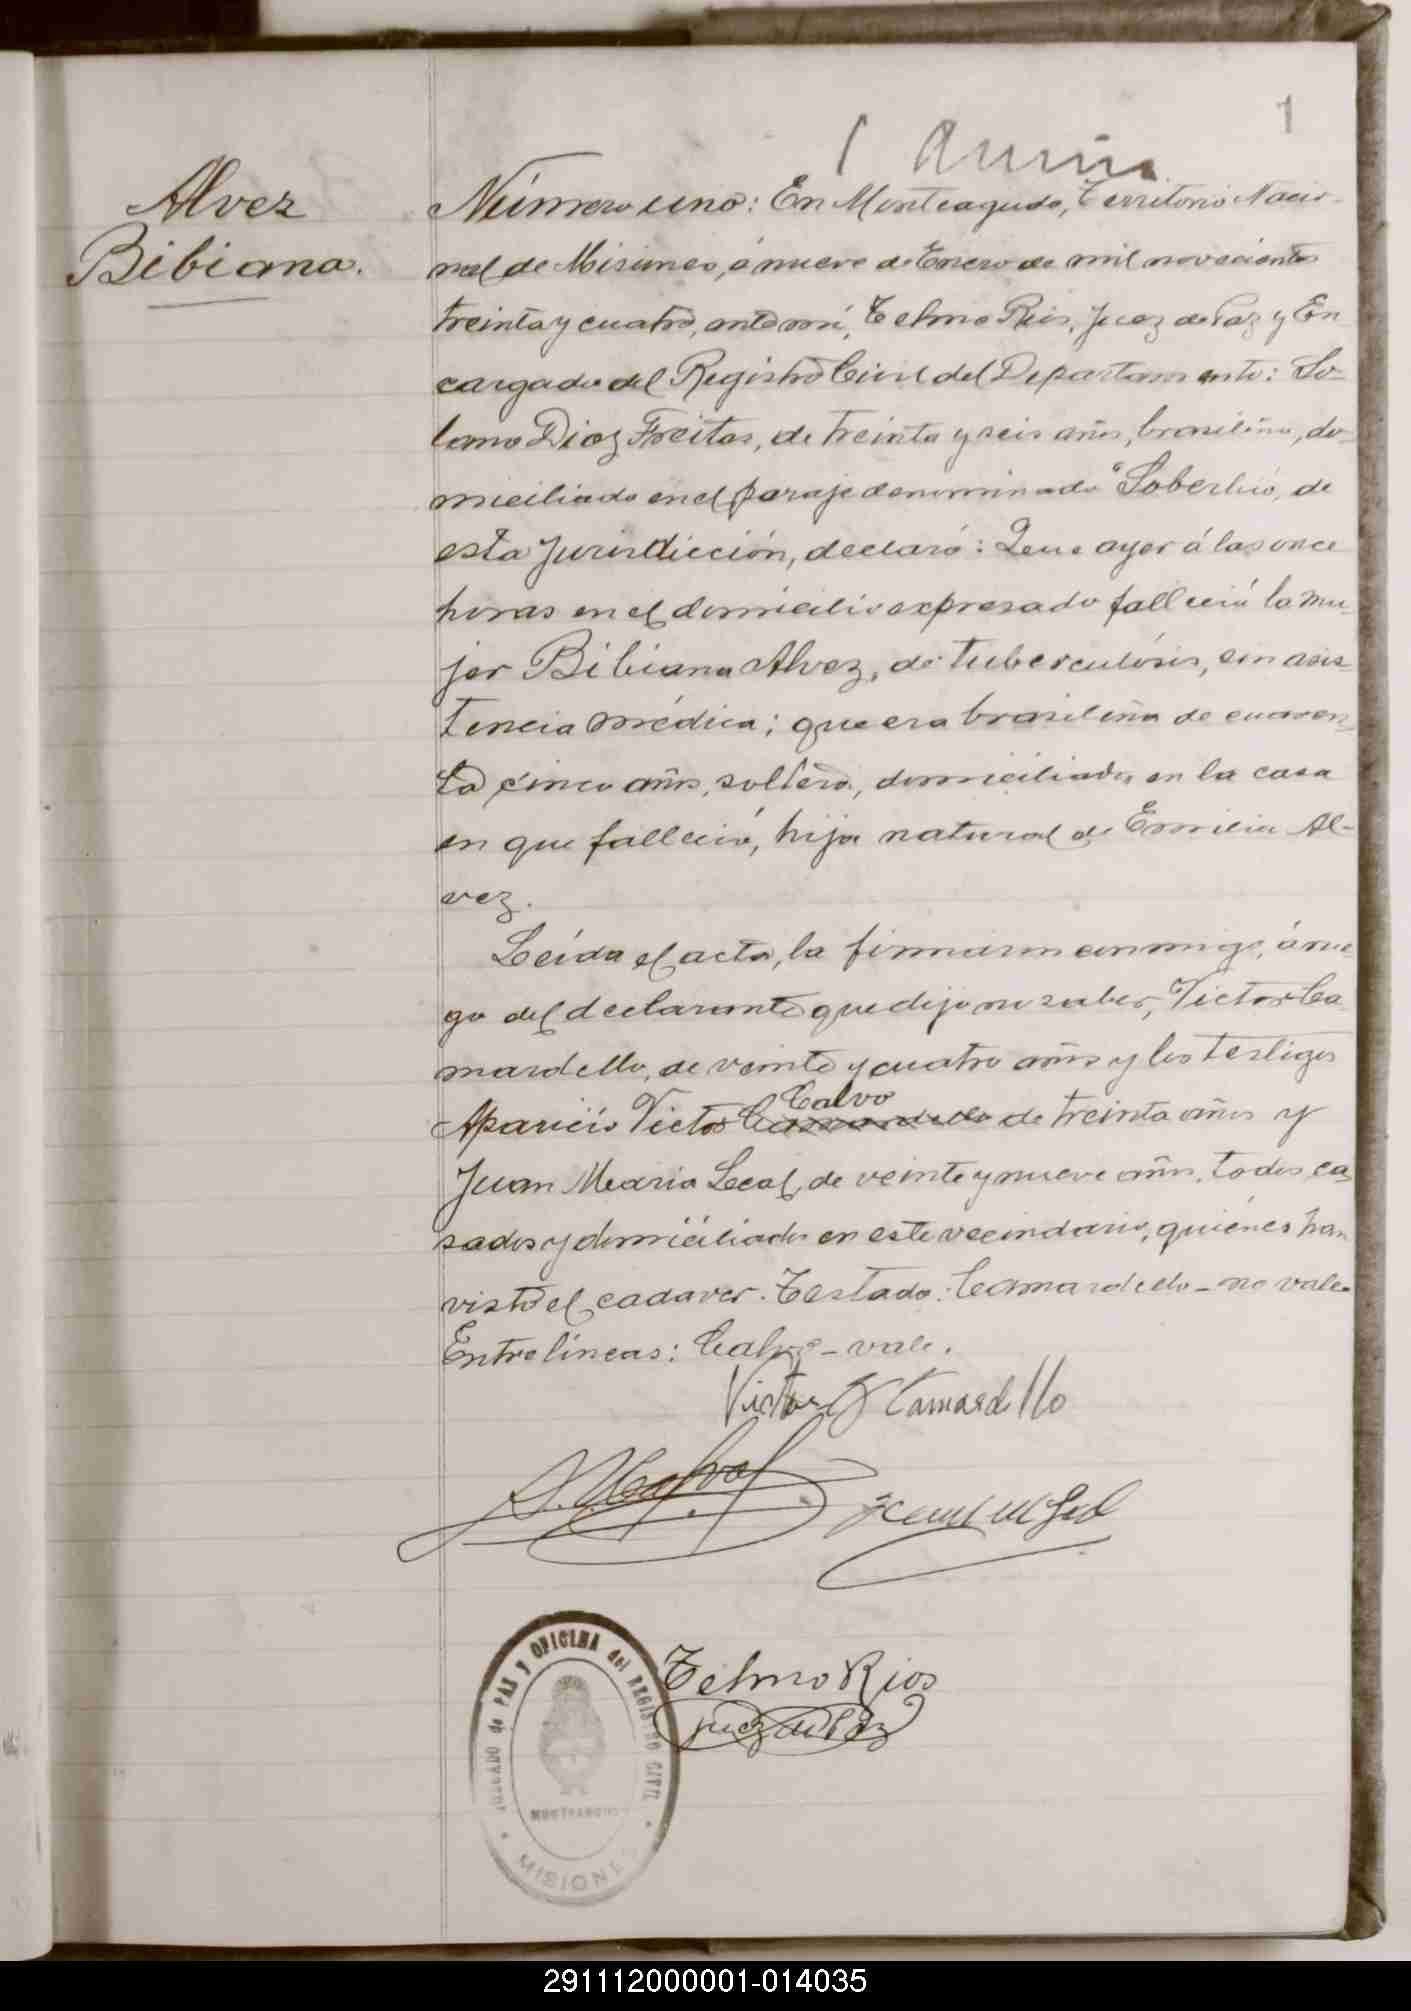 1
1
Alvez
Bibiana.
Número uno: En Monteagudo, Territorio Nacio-
nal de Misiones, á nueve de Enero de mil novecientos
treinta y cuatro, ante mí, Telmo Rios, Juez de Paz y En
cargado del Registro Civil del Departamento: So-
lano Diaz Freitas, de treinta y seis años, brasileño, do-
miciliado en el paraje denominado "Soberbio, de
esta Jurisdicción, declaró: Que ayer á las once
horas en el domicilio expresado falleció la mu-
jer Bibiana Alvez, de tuberculósis, sin asis-
tencia médica; que era brasileña de cuaren-
ta cinco años, soltera, domiciliada en la casa
en que falleció, hija natural de Emilia Al-
vez.
Leída el acta, la firmaron conmigo, á rue-
go del declarante que dijo no saber, Victor Ca-
mardello, de veinte y cuatro años y los testigos
Calvo
Aparicio Victor Camardello de treinta años y
Juan Maria Leal, de veinte y nueve años, todos ca-
sados y domiciliados en este vecindario, quiénes han
visto el cadaver. Testado: Camardello - no vale.
Entrelíneas: Calvo - vale.
Victor Camardello
A. V. Calvo
Juan M Leal
Telmo Rios
Juez de Paz
JUZGADO de PAZ y OFICINA del REGISTRO CIVIL
MONTEAGUDO
MISIONES
291112000001-014035